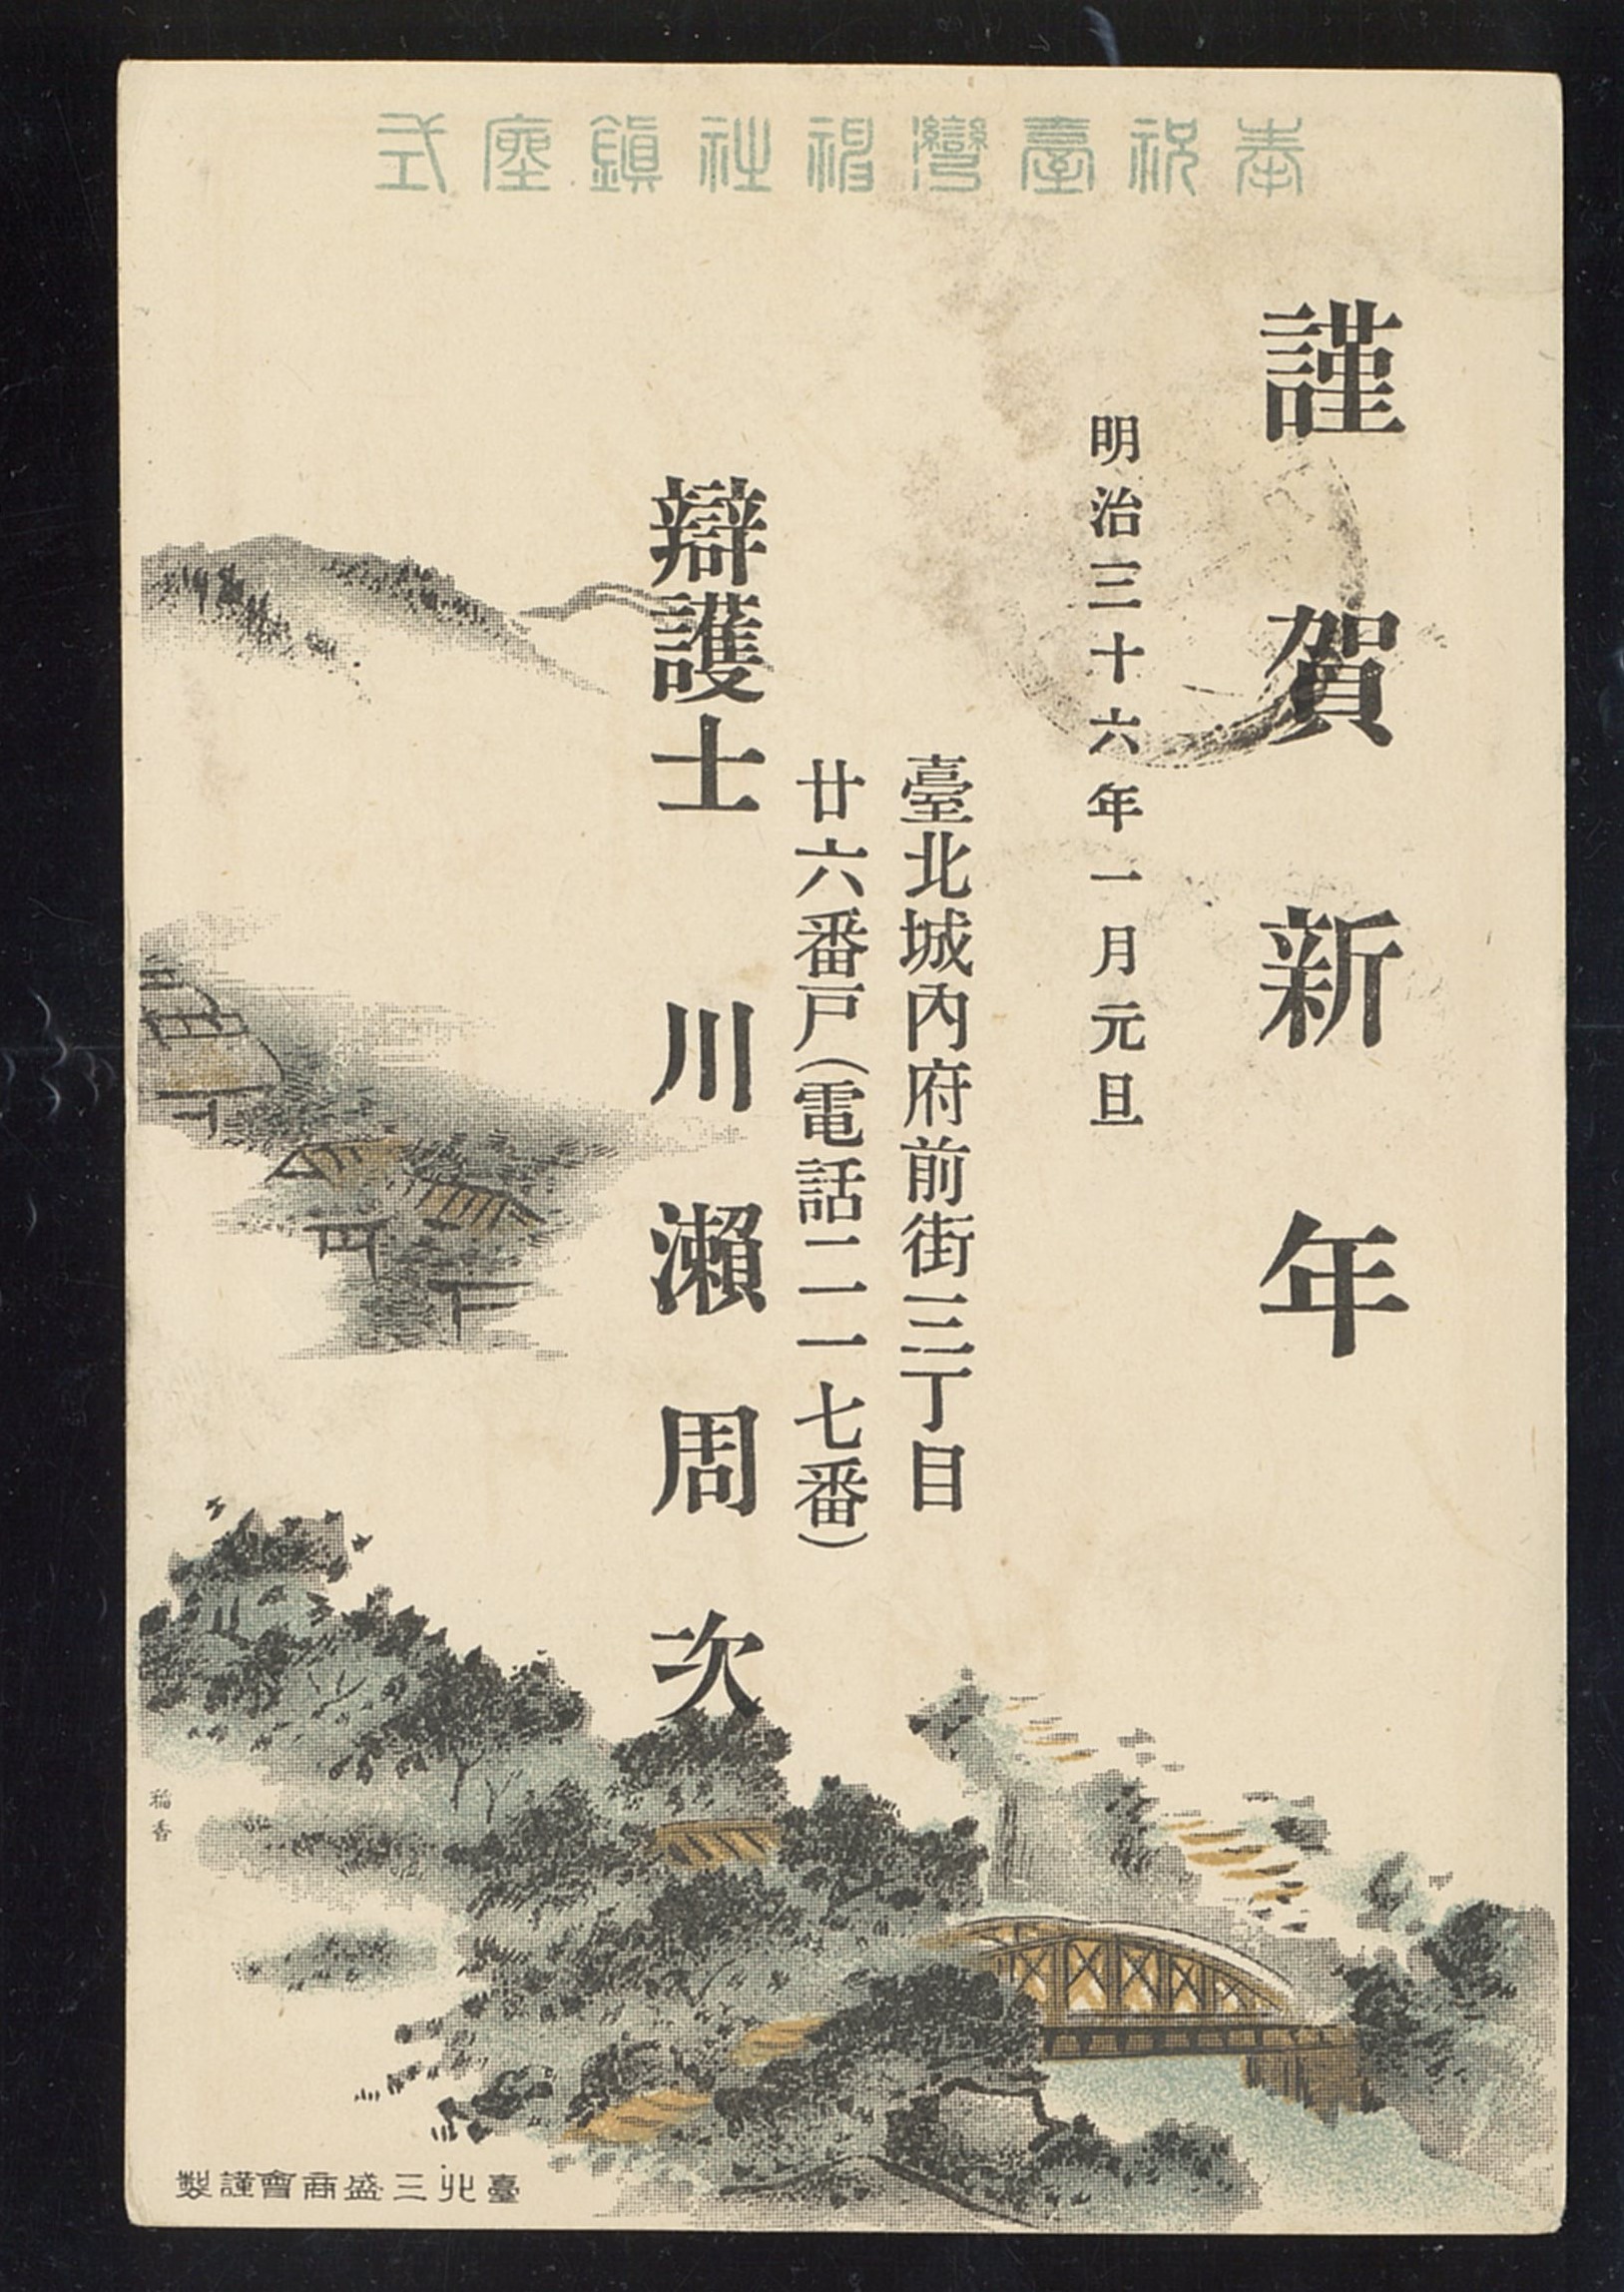 奉祝臺灣神社鎮座式
謹賀新年
明治三十六年一月元旦
臺北城內府前街三丁目
廿六番戸(電話二一七番)
辯護士 川瀨周次
臺北三盛商會謹製